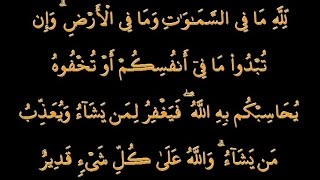 لِّلَّهِ مَا فِي السَّمَـٰوَٰتِ وَمَا فِي الْأَرْضِ ۗ وَإِن
تُبْدُوا۟ مَا فِيٓ أَنفُسِكُمْ أَوْ تُخْفُوهُ
يُحَاسِبْكُم بِهِ اللَّهُ ۖ فَيَغْفِرُ لِمَن يَشَآءُ وَيُعَذِّبُ
مَن يَشَآءُ ۗ وَاللَّهُ عَلَىٰ كُلِّ شَىْءٍ قَدِيرٌ